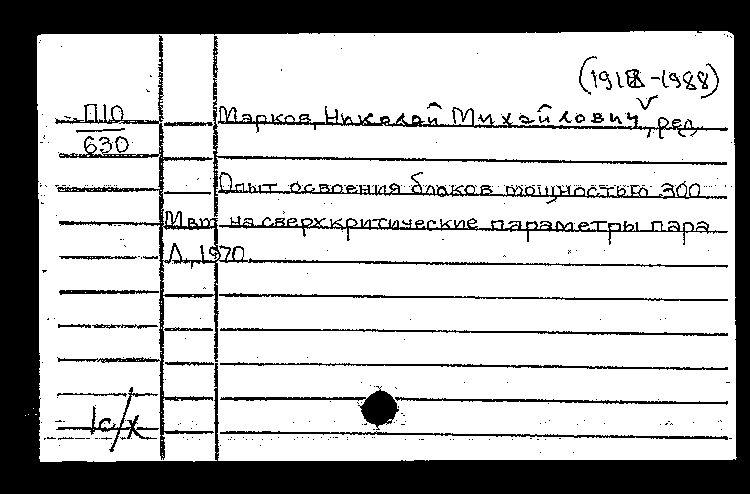 (1918-1988)
П10
630
Марков, Николай Михайлович, ред.
Опыт освоения блоков мощностью 300
Мвт на сверхкритические параметры пара
Л., 1970.
1с/х